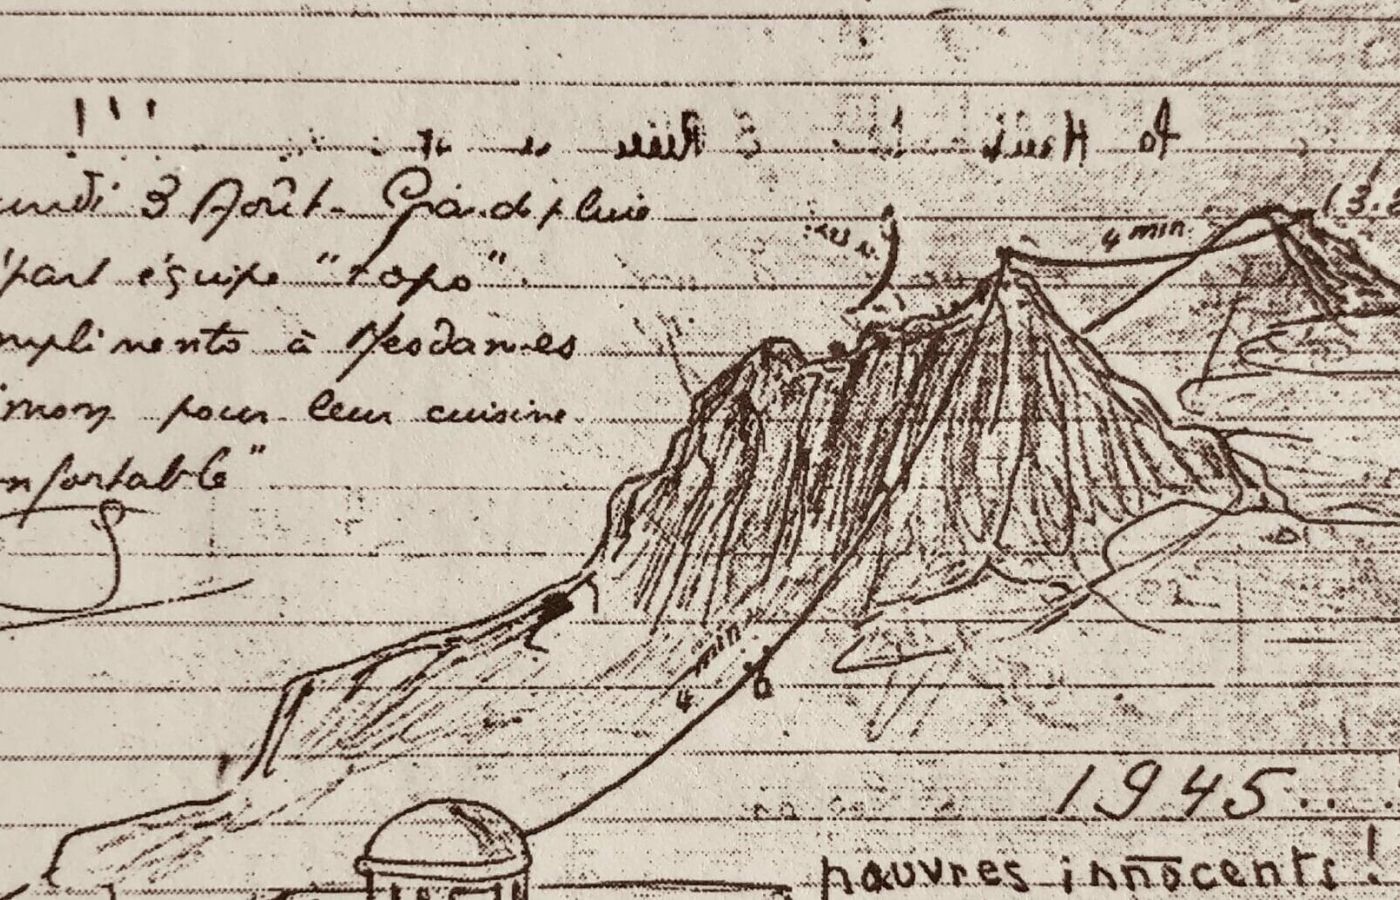 undi 3 Août. Grande pluie
part équipe "topo".
mpliments à Mesdames
imon pour leur cuisine
nfortable"
4 min.
4 min.
1945...
pauvres innocents!